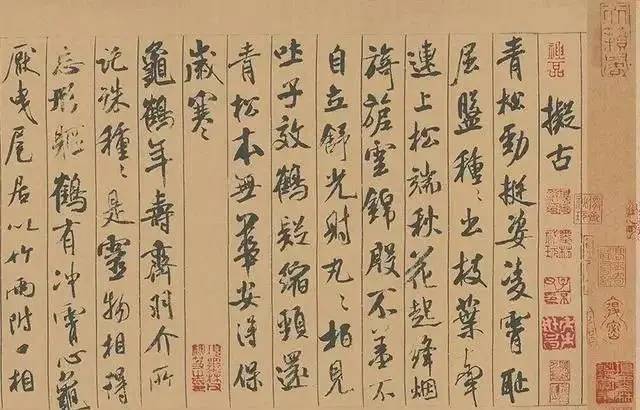 神品
擬古
青松勁挺姿凌霄恥
屈盤種〻出枝葉牽
連上松端秋花起絳烟
旖旎雲錦殷不羞不
自立舒光射丸〻柏見
吐子效鶴疑縮頸還
青松本無華安得保
歲寒
龜鶴年壽齊羽介所
託殊種〻是靈物相得
忘形軀鶴有冲霄心龜
厭曳尾居以竹兩附口相